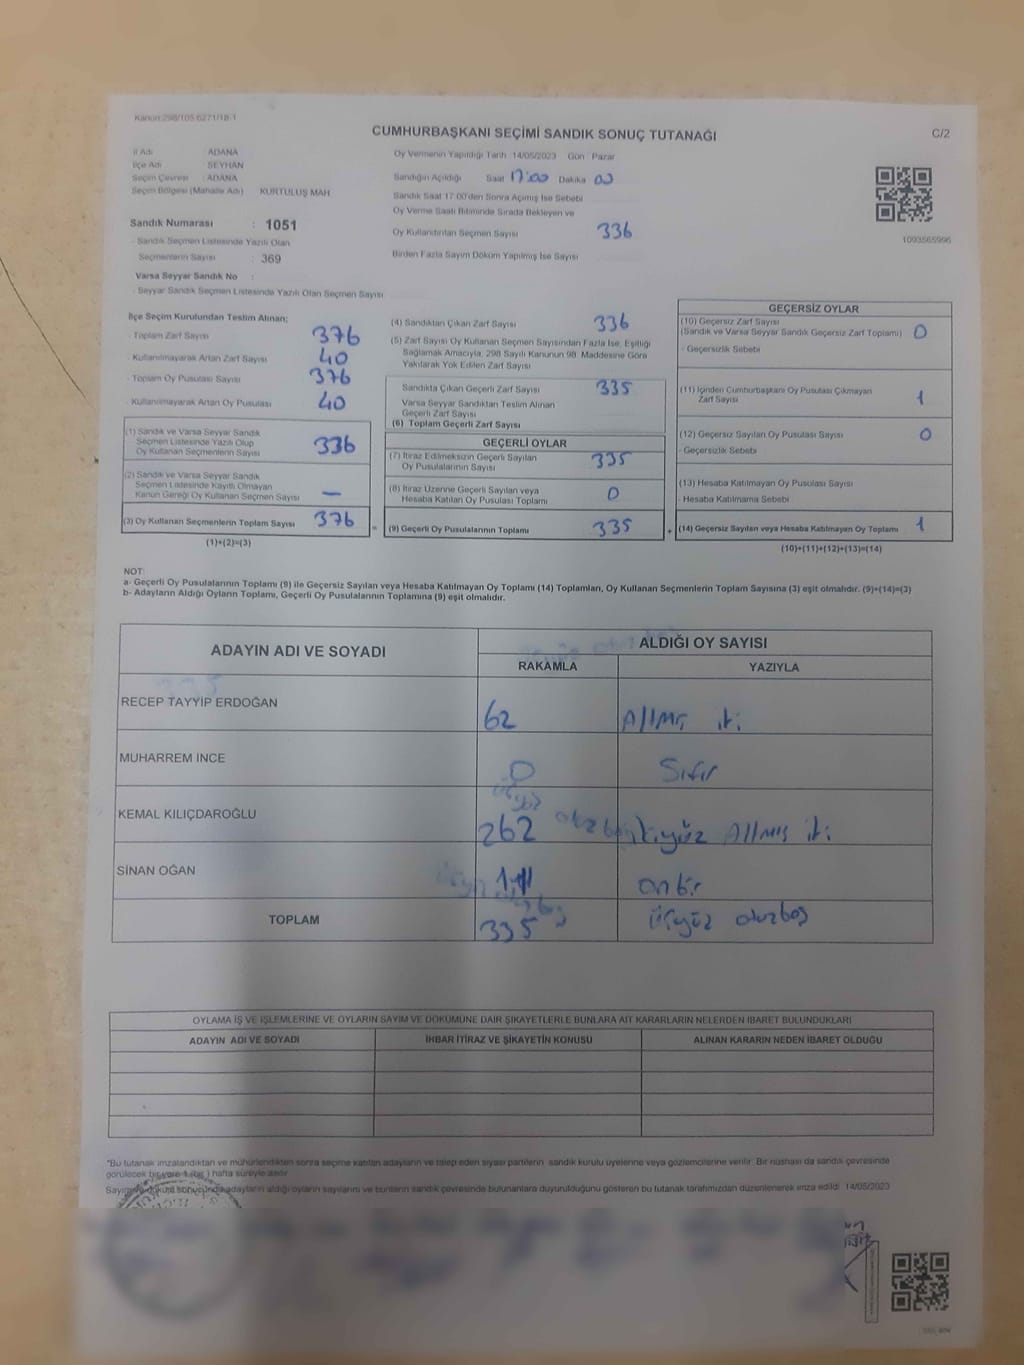 Kanun:298/105 6271/18-1
CUMHURBAŞKANI SEÇİMİ SANDIK SONUÇ TUTANAĞI
C/2
İl Adı : ADANA
İlçe Adı : SEYHAN
Seçim Çevresi : ADANA
Seçim Bölgesi (Mahalle Adı) KURTULUŞ MAH
Sandık Numarası : 1051
- Sandık Seçmen Listesinde Yazılı Olan
Seçmenlerin Sayısı : 369
Varsa Seyyar Sandık No :
- Seyyar Sandık Seçmen Listesinde Yazılı Olan Seçmen Sayısı
Oy Vermenin Yapıldığı Tarih :14/05/2023 Gün : Pazar
Sandığın Açıldığı Saat 17:00 Dakika 00
Sandık Saat 17.00'den Sonra Açılmış İse Sebebi
Oy Verme Saati Bitiminde Sırada Bekleyen ve
Oy Kullandırılan Seçmen Sayısı 336
Birden Fazla Sayım Döküm Yapılmış İse Sayısı
1093565996
İlçe Seçim Kurulundan Teslim Alınan;
- Toplam Zarf Sayısı 376
- Kullanılmayarak Artan Zarf Sayısı 40
- Toplam Oy Pusulası Sayısı 376
- Kullanılmayarak Artan Oy Pusulası 40
(1) Sandık ve Varsa Seyyar Sandık
Seçmen Listesinde Yazılı Olup
Oy Kullanan Seçmenlerin Sayısı 336
(2) Sandık ve Varsa Seyyar Sandık
Seçmen Listesinde Kayıtlı Olmayan
Kanun Gereği Oy Kullanan Seçmen Sayısı —
(3) Oy Kullanan Seçmenlerin Toplam Sayısı 376
(1)+(2)=(3)
(4) Sandıktan Çıkan Zarf Sayısı 336
(5) Zarf Sayısı Oy Kullanan Seçmen Sayısından Fazla İse, Eşitliği
Sağlamak Amacıyla, 298 Sayılı Kanunun 98. Maddesine Göre
Yakılarak Yok Edilen Zarf Sayısı
Sandıkta Çıkan Geçerli Zarf Sayısı 335
Varsa Seyyar Sandıktan Teslim Alınan
Geçerli Zarf Sayısı
(6) Toplam Geçerli Zarf Sayısı
GEÇERLİ OYLAR
(7) İtiraz Edilmeksizin Geçerli Sayılan
Oy Pusulalarının Sayısı 335
(8) İtiraz Üzerine Geçerli Sayılan veya
Hesaba Katılan Oy Pusulası Toplamı 0
= (9) Geçerli Oy Pusulalarının Toplamı 335
GEÇERSİZ OYLAR
(10) Geçersiz Zarf Sayısı
(Sandık ve Varsa Seyyar Sandık Geçersiz Zarf Toplamı) 0
- Geçersizlik Sebebi
(11) İçinden Cumhurbaşkanı Oy Pusulası Çıkmayan
Zarf Sayısı 1
(12) Geçersiz Sayılan Oy Pusulası Sayısı 0
- Geçersizlik Sebebi
(13) Hesaba Katılmayan Oy Pusulası Sayısı
- Hesaba Katılmama Sebebi
+ (14) Geçersiz Sayılan veya Hesaba Katılmayan Oy Toplamı 1
(10)+(11)+(12)+(13)=(14)
NOT:
a- Geçerli Oy Pusulalarının Toplamı (9) ile Geçersiz Sayılan veya Hesaba Katılmayan Oy Toplamı (14) Toplamları, Oy Kullanan Seçmenlerin Toplam Sayısına (3) eşit olmalıdır. (9)+(14)=(3)
b- Adayların Aldığı Oyların Toplamı, Geçerli Oy Pusulalarının Toplamına (9) eşit olmalıdır.
ADAYIN ADI VE SOYADI
ALDIĞI OY SAYISI
RAKAMLA YAZIYLA
RECEP TAYYİP ERDOĞAN 62 Altmış iki
MUHARREM İNCE 0 Sıfır
KEMAL KILIÇDAROĞLU 262 ikiyüz Altmış iki
SİNAN OĞAN 11 onbir
TOPLAM 335 üçyüz otuzbeş
OYLAMA İŞ VE İŞLEMLERİNE VE OYLARIN SAYIM VE DÖKÜMÜNE DAİR ŞİKAYETLERLE BUNLARA AİT KARARLARIN NELERDEN İBARET BULUNDUKLARI
ADAYIN ADI VE SOYADI İHBAR İTİRAZ VE ŞİKAYETİN KONUSU ALINAN KARARIN NEDEN İBARET OLDUĞU
*Bu tutanak imzalandıktan ve mühürlendikten sonra seçime katılan adayların ve talep eden siyasi partilerin sandık kurulu üyelerine veya gözlemcilerine verilir. Bir nüshası da sandık çevresinde
görülecek bir yere 1 (bir) hafta süreyle asılır
Sayım ve döküm sonucunda adayların aldığı oyların sayılarını ve bunların sandık çevresinde bulunanlara duyurulduğunu gösteren bu tutanak tarafımızdan düzenlenerek imza edildi. 14/05/2023